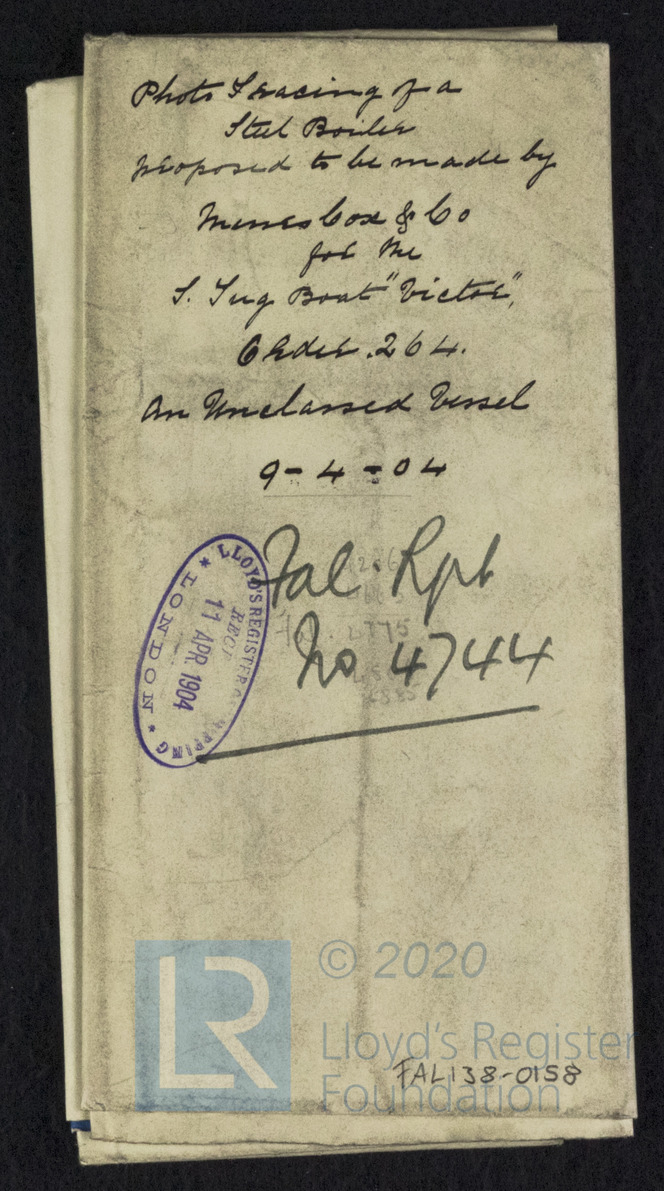 Photo Tracing of a
Steel Boiler
proposed to be made by
Messrs Cox & Co
for the
S. Tug Boat "Victor",
Order. 264.
An Unclassed Vessel
9-4-04
Fal. Rpt
No 4744
LLOYD'S REGISTER OF SHIPPING
* LONDON *
RECD
11 APR. 1904
LR
© 2020
Lloyd's Register
Foundation
FAL138-0158